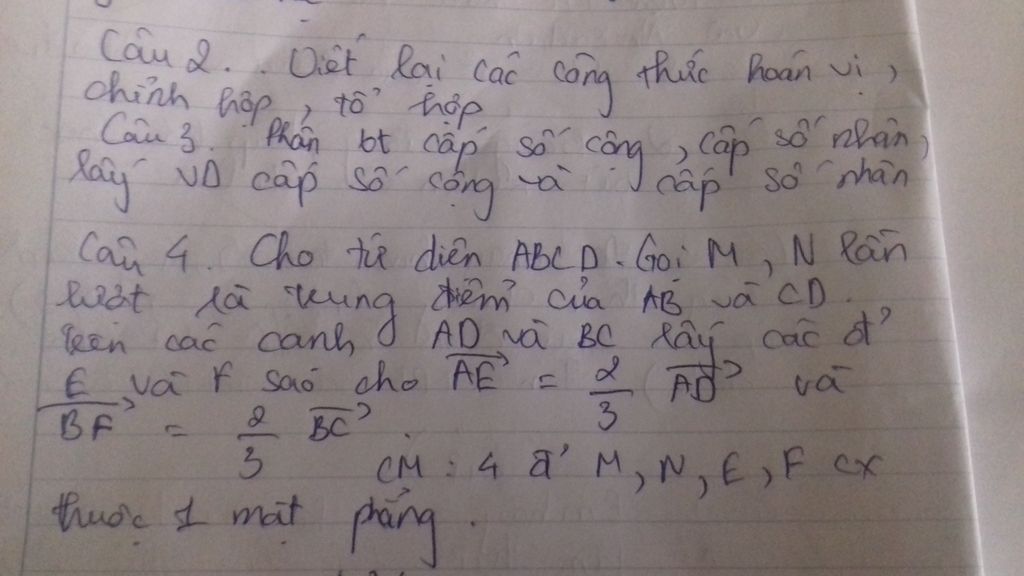 Câu 2. . Viết lại các công thức hoán vị,
chỉnh hợp, tổ hợp
Câu 3. Phân bt cấp số cộng, cấp số nhân,
lấy VD cấp số cộng và cấp số nhân
Câu 4. Cho tứ diện ABCD. Gọi M, N lần
lượt là trung điểm của AB và CD.
trên các cạnh AD và BC lấy các đ'
E và F sao cho \overrightarrow{AE} = \frac{2}{3} \overrightarrow{AD} và
\overrightarrow{BF} = \frac{2}{3} \overrightarrow{BC}.
CM : 4 đ' M, N, E, F cx
thuộc 1 mặt phẳng.